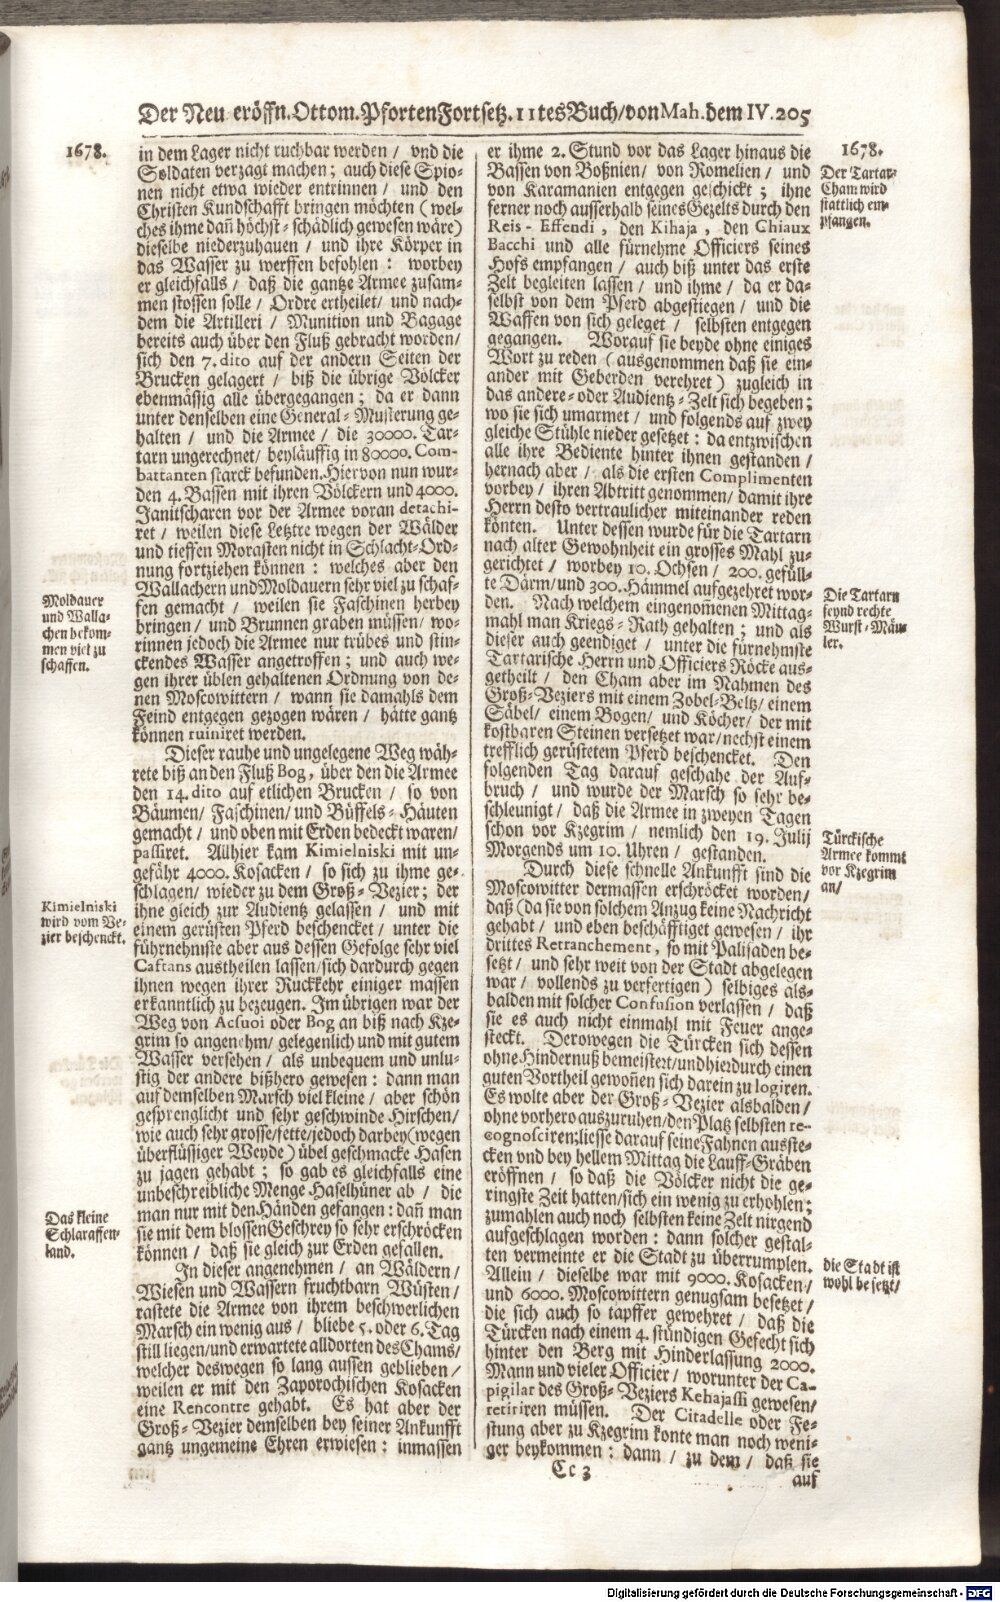 Der Neu eröffn. Ottom. Pforten Fortsetz. 11tes Buch/ von Mah. dem IV. 205
1678.
in dem Lager nicht ruchbar werden / vnd die
Soldaten verzagt machen; auch diese Spio-
nen nicht etwa wieder entrinnen / und den
Christen Kundschafft bringen möchten (wel-
ches ihme dañ höchst-schädlich gewesen wäre)
dieselbe niederzuhauen / und ihre Körper in
das Wasser zu werffen befohlen: worbey
er gleichfalls / daß die gantze Armee zusam-
men stossen solle / Ordre ertheilet/ und nach-
dem die Artilleri / Munition und Bagage
bereits auch über den Fluß gebracht worden/
sich den 7. dito auf der andern Seiten der
Brucken gelagert / biß die übrige Völcker
ebenmässig alle übergegangen; da er dann
unter denselben eine General-Musterung ge-
halten / und die Armee / die 30000. Tar-
tarn ungerechnet/ beyläuffig in 80000. Com-
battanten starck befunden. Hier von nun wur-
den 4. Bassen mit ihren Völckern und 4000.
Janitscharen vor der Armee voran detachi-
ret / weilen diese Letztre wegen der Wälder
und tieffen Morasten nicht in Schlacht-Ord-
nung fortziehen können: welches aber den
Wallachern und Moldauern sehr viel zu schaf-
fen gemacht / weilen sie Faschinen herbey
bringen / und Brunnen graben müssen/ wo-
rinnen jedoch die Armee nur trübes und stin-
ckendes Wasser angetroffen; und auch we-
gen ihrer üblen gehaltenen Ordnung von de-
nen Moscowittern / wann sie damahls dem
Feind entgegen gezogen wären / hätte gantz
können ruiniret werden.
Moldauer
und Walla-
chen bekom-
men viel zu
schaffen.
Dieser rauhe und ungelegene Weg wäh-
rete biß an den Fluß Bog, über den die Armee
den 14. dito auf etlichen Brucken / so von
Bäumen/ Faschinen/ und Büffels-Häuten
gemacht / und oben mit Erden bedeckt waren/
passiret. Allhier kam Kimielniski mit un-
gefähr 4000. Kosacken / so sich zu ihme ge-
schlagen/ wieder zu dem Groß-Vezier; der
ihne gleich zur Audientz gelassen / und mit
einem gerüsten Pferd beschencket / unter die
führnehmste aber aus dessen Gefolge sehr viel
Caftans austheilen lassen/ sich dardurch gegen
ihnen wegen ihrer Ruckkehr einiger massen
erkanntlich zu bezeugen. Im übrigen war der
Weg von Acsuoi oder Bog an biß nach Kze-
grim so angenehm/ gelegenlich und mit gutem
Wasser versehen / als unbequem und unlu-
stig der andere bißhero gewesen: dann man
auf demselben Marsch viel kleine / aber schön
gesprenglicht und sehr geschwinde Hirschen/
wie auch sehr grosse/ fette/ jedoch darbey (wegen
überflüssiger Weyde) übel geschmacke Hasen
zu jagen gehabt; so gab es gleichfalls eine
unbeschreibliche Menge Haselhüner ab / die
man nur mit den Händen gefangen: dañ man
sie mit dem blossen Geschrey so sehr erschröcken
können / daß sie gleich zur Erden gefallen.
Kimielniski
wird vom Ve-
zier beschenckt.
Das kleine
Schlaraffen-
land.
In dieser angenehmen / an Wäldern/
Wiesen und Wassern fruchtbarn Wüsten/
rastete die Armee von ihrem beschwerlichen
Marsch ein wenig aus / bliebe 5. oder 6. Tag
still liegen/ und erwartete alldorten des Chams/
welcher deswegen so lang aussen geblieben /
weilen er mit den Zaporochischen Kosacken
eine Rencontre gehabt. Es hat aber der
Groß-Vezier demselben bey seiner Ankunfft
gantz ungemeine Ehren erwiesen: inmassen
er ihme 2. Stund vor das Lager hinaus die
Bassen von Boßnien/ von Romelien / und
von Karamanien entgegen geschickt; ihne
ferner noch ausserhalb seines Gezelts durch den
Reis-Effendi, den Kihaja, den Chiaux
Bacchi und alle fürnehme Officiers seines
Hofs empfangen / auch biß unter das erste
Zelt begleiten lassen / und ihme / da er da-
selbst von dem Pferd abgestiegen / und die
Waffen von sich geleget / selbsten entgegen
gegangen. Worauf sie beyde ohne einiges
Wort zu reden (ausgenommen daß sie ein-
ander mit Geberden verehret) zugleich in
das andere- oder Audientz-Zelt sich begeben;
wo sie sich umarmet / und folgends auf zwey
gleiche Stühle nieder gesetzet: da entzwischen
alle ihre Bediente hinter ihnen gestanden /
hernach aber / als die ersten Complimenten
vorbey / ihren Abtritt genommen/ damit ihre
Herrn desto vertraulicher miteinander reden
könten. Unter dessen wurde für die Tartarn
nach alter Gewohnheit ein grosses Mahl zu-
gerichtet / worbey 10. Ochsen / 200. gefüll-
te Därm/ und 300. Hämmel aufgezehret wor-
den. Nach welchem eingenom̃enen Mittag-
mahl man Kriegs-Rath gehalten; und als
dieser auch geendiget / unter die fürnehmste
Tartarische Herrn und Officiers Röcke aus-
getheilt / den Cham aber im Nahmen des
Groß-Veziers mit einem Zobel-Beltz/ einem
Säbel/ einem Bogen/ und Köcher/ der mit
kostbaren Steinen versetzet war/ nechst einem
trefflich gerüstetem Pferd beschencket. Den
folgenden Tag darauf geschahe der Auf-
bruch / und wurde der Marsch so sehr be-
schleunigt / daß die Armee in zweyen Tagen
schon vor Kzegrim / nemlich den 19. Julij
Morgends um 10. Uhren / gestanden.
1678.
Der Tartar-
Cham wird
stattlich em-
pfangen.
Die Tartarn
seynd rechte
Wurst-Mäu-
ler.
Türckische
Armee kommt
vor Kzegrim
an/
Durch diese schnelle Ankunfft sind die
Moscowitter dermassen erschröcket worden/
daß (da sie von solchem Anzug keine Nachricht
gehabt / und eben beschäfftiget gewesen / ihr
drittes Retranchement, so mit Palisaden be-
setzt / und sehr weit von der Stadt abgelegen
war / vollends zu verfertigen) selbiges als-
balden mit solcher Confusion verlassen / daß
sie es auch nicht einmahl mit Feuer ange-
steckt. Derowegen die Türcken sich dessen
ohne Hindernuß bemeistert/ und hierdurch einen
guten Vortheil gewoñen sich darein zu logiren.
Es wolte aber der Groß-Vezier alsbalden/
ohne vorhero auszuruhen/ den Platz selbsten re-
cognosciren: liesse darauf seine Fahnen ausste-
cken vnd bey hellem Mittag die Lauff-Gräben
eröffnen / so daß die Völcker nicht die ge-
ringste Zeit hatten/ sich ein wenig zu erhohlen;
zumahlen auch noch selbsten keine Zelt nirgend
aufgeschlagen worden: dann solcher gestal-
ten vermeinte er die Stadt zu überrumplen.
Allein / dieselbe war mit 9000. Kosacken/
und 6000. Moscowittern genugsam besetzet /
die sich auch so tapffer gewehret / daß die
Türcken nach einem 4. stündigen Gefecht sich
hinter den Berg mit Hinderlassung 2000.
Mann und vieler Officier / worunter der Ca-
pigilar des Groß-Veziers Kehajassi gewesen/
retiriren müssen. Der Citadelle oder Fe-
stung aber zu Kzegrim konte man noch weni-
ger beykommen: dann / zu dem / daß sie
die Stadt ist
wohl besetzt/
Cc 3
auf
Digitalisierung gefördert durch die Deutsche Forschungsgemeinschaft - DFG